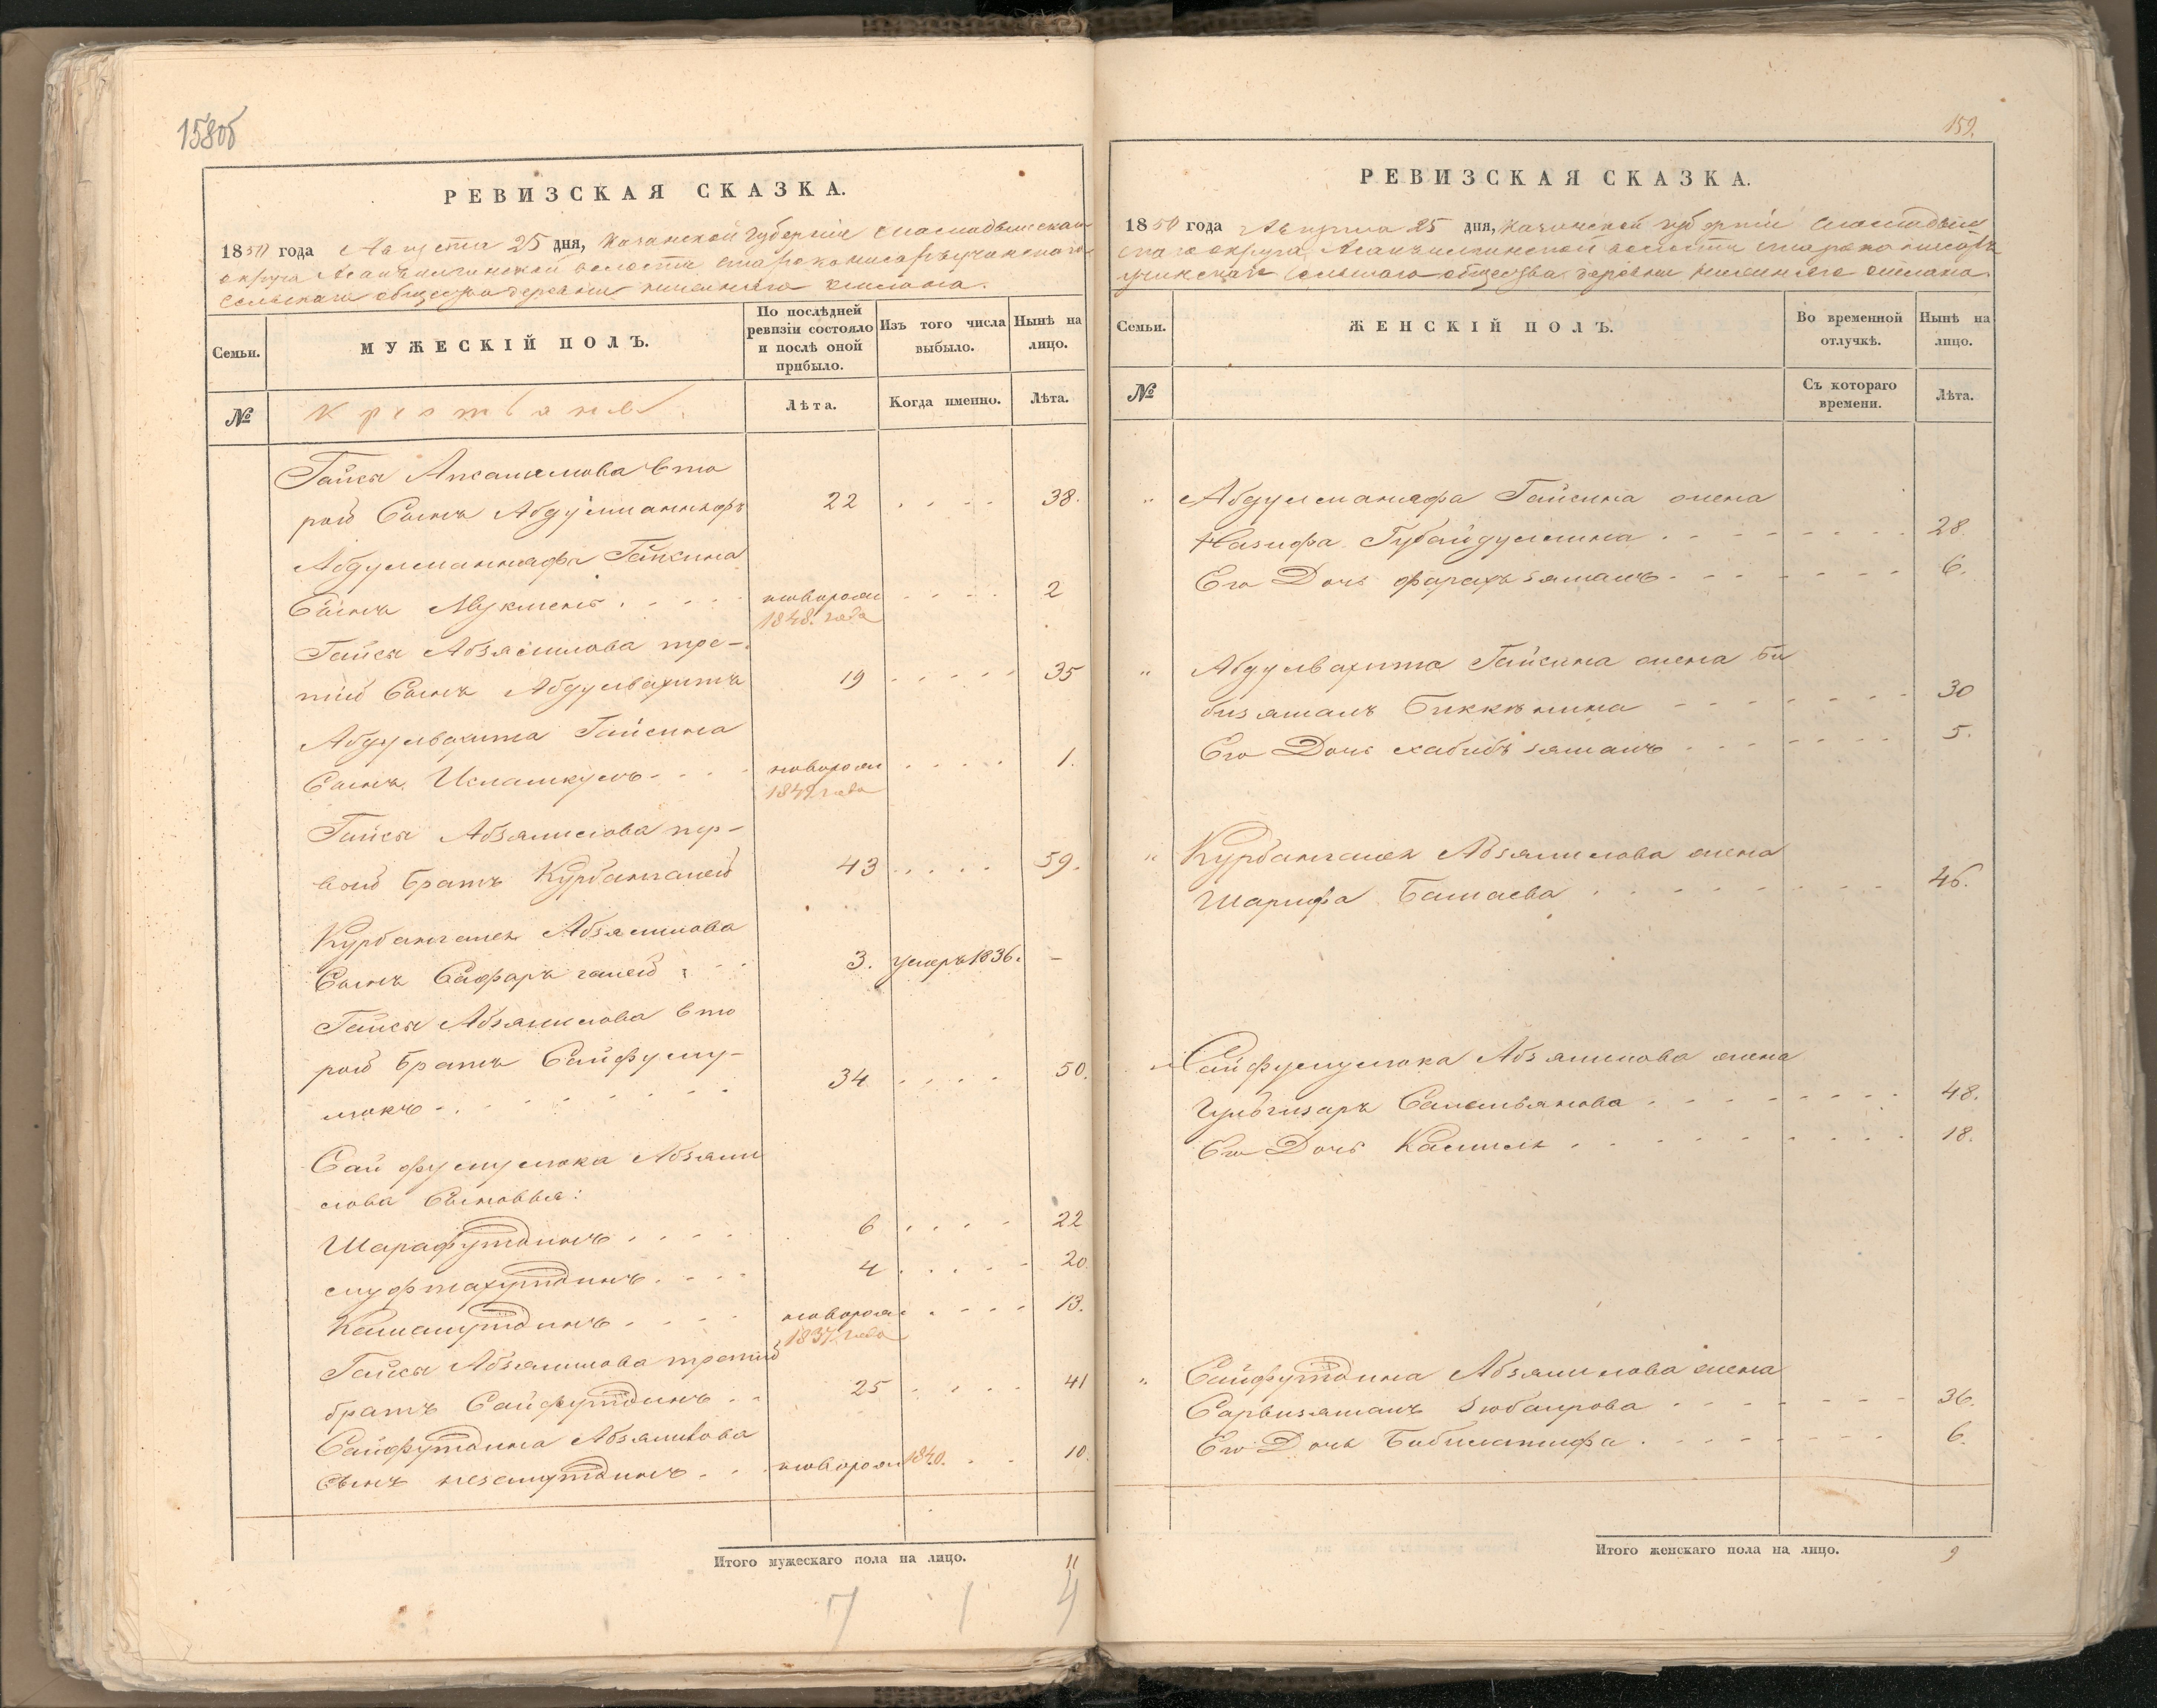 158об
РЕВИЗСКАЯ СКАЗКА.
1850 года Августа 25 дня, Казанской губернiи
округа волости
сельскаго общества деревни
Семьи.
МУЖЕСКІЙ ПОЛЪ.
По послѣдней ревизіи состояло и послѣ оной прибыло.
Изъ того числа выбыло.
Нынѣ на лицо.
№
Крестьяне
Лѣта.
Когда именно.
Лѣта.
Гайсы Апсалямова вто
рой Сынъ Абдулманнафъ 22 38.
Абдулманнафа Гайсина
Сынъ Мукменъ новорож 2
1848. года
Гайсы Абзялилова тре-
тій Сынъ Абдулвахитъ 19 35
Абдулвахита Гайсина
Сынъ Исламкулъ новорож 1.
1849 года
Гайсы Абзялилова пер-
вой братъ Курбангалей 43 59.
Курбангалея Абзялилова
Сынъ Сафаръ галей 3. умеръ 1836. -
Гайсы Абзялилова вто
рой братъ Сайфулму-
люкъ 34 50.
Сайфулмулюка Абзяли
лова Сыновья:
Шарафутдинъ 6 22
муфтахутдинъ 4 20
Камалутдинъ новорож 13.
1837 года
Гайсы Абзялилова третій
братъ Сайфутдинъ 25 41
Сайфутдина Абзялилова
Сынъ незамутдинъ новорож 1840. 10.
Итого мужескаго пола на лицо. 11
7 1 4
159.
РЕВИЗСКАЯ СКАЗКА.
1850 года Августа 25 дня, Казанской губернiи
скаго округа волости
сельскаго общества деревни
Семьи.
ЖЕНСКІЙ ПОЛЪ.
Во временной отлучкѣ.
Нынѣ на лицо.
№
Съ котораго времени.
Лѣта.
" Абдулманафа Гайсина жена
Назифа Губайдуллина 28
Его Дочь фарахъ зямалъ 6.
" Абдулвахита Гайсина жена Би
бизямалъ Биккѣнина 30
Его Дочь хабибъ зямалъ 5.
" Курбангалея Абзялилова жена
Шарифа Башаева 46.
" Сайфулмулюка Абзялилова жена
Гульгизаръ Салемьянова 48.
Его Дочь Камиля 18.
" Сайфутдина Абзялилова жена
Сарвизямалъ Зюбаирова 36.
Его Дочь Бибилатифа 6.
Итого женскаго пола на лицо. 9